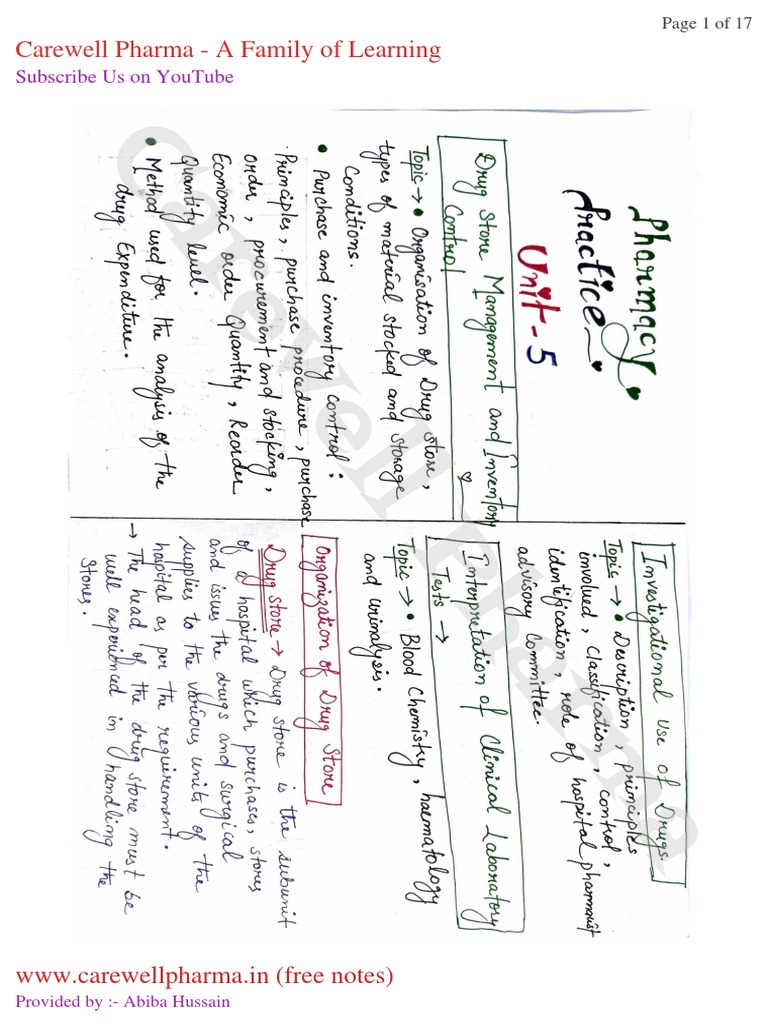 Page 1 of 17
Carewell Pharma - A Family of Learning
Subscribe Us on YouTube
Pharmacy
Practice
Unit-5
Drug Store Management and Inventory
Control
Topic → • Organisation of Drug store,
types of material stocked and storage
Conditions.
• Purchase and inventory control :
· Principles, purchase procedure, purchase
order, procurement and stocking,
Economic order Quantity, Reorder
Quantity level.
• Method used for the analysis of the
drug Expenditure.
Investigational Use of Drugs.
Topic → • Description, principles
involved, classification, control,
identification, role of hospital pharmacist
advisory committee.
Interpretation of Clinical Laboratory
Tests →
Topic → • Blood Chemistry, haematology
and urinalysis.
Organization of Drug Store
Drug store → Drug store is the subunit
of a hospital which purchase, stores
and issues the drugs and surgical
supplies to the various units of the
hospital as per the requirement.
→ The head of the drug store must be
well experienced in handling the
stores.
Carewell Pharma
www.carewellpharma.in (free notes)
Provided by :- Abiba Hussain